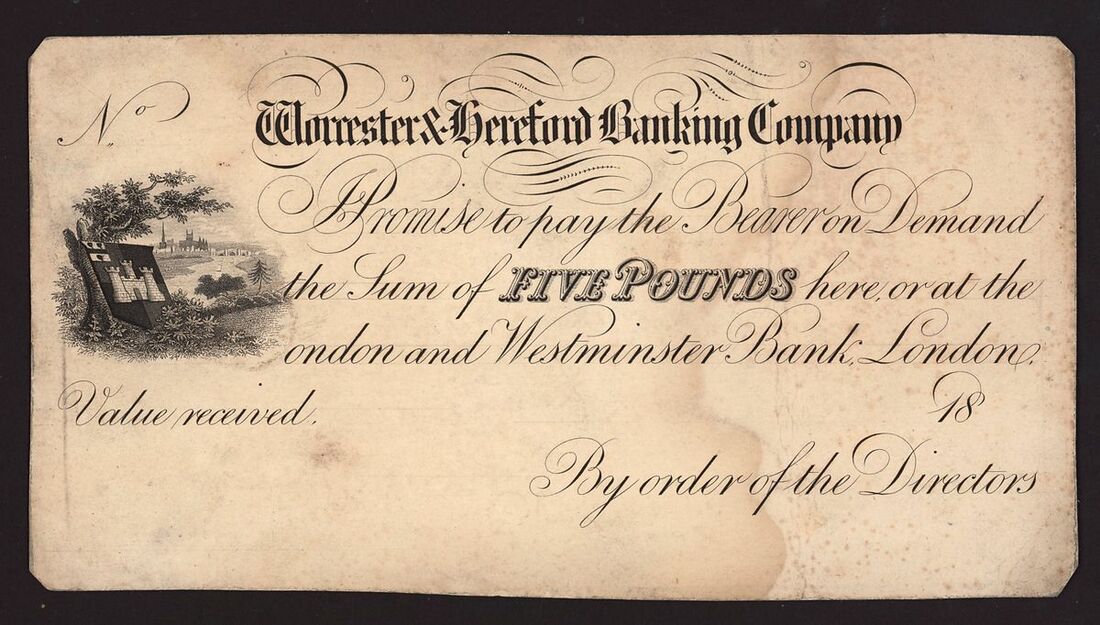 No
Worcester & Hereford Banking Company
I Promise to pay the Bearer on Demand
the Sum of FIVE POUNDS here, or at the
ondon and Westminster Bank, London,
Value received. 18
By order of the Directors